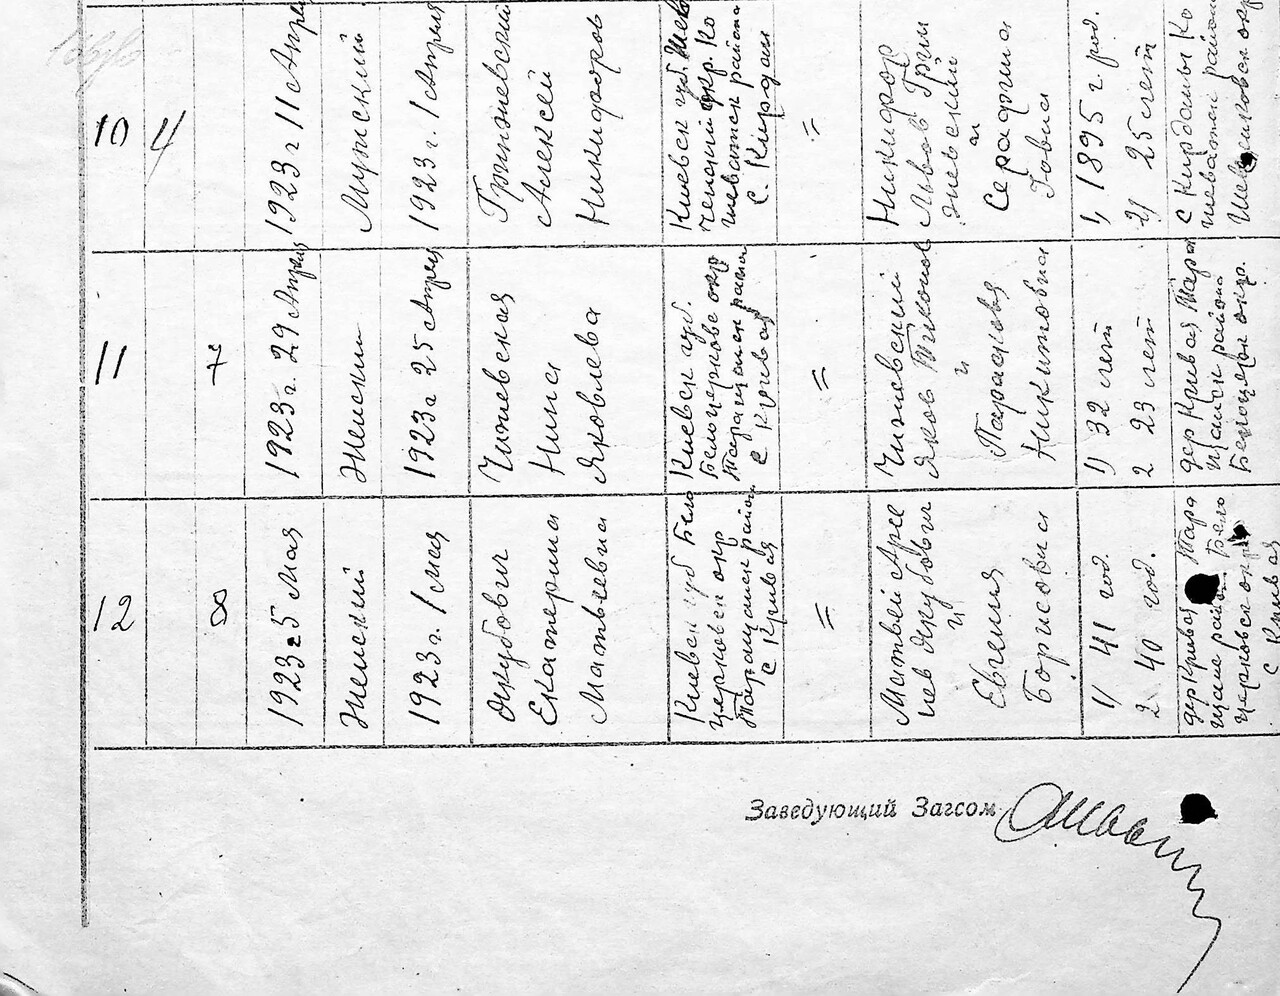 10
4
1923 г 11 Апрел
Мужский
1923 г. 1 Апреля
Гринževский
Алексей
Никифоров
Киевск губ. Шев
ченский окр. Ко
шеватск района
с. Кирданы
=
Никифор
Львов Грин
жевский
и
Серафима
Говиа
1, 1895 г. род.
2) 25 лет
с Кирданы Ко
шеватск район
Шевченковск окр
11
7
1923 г. 29 Апрел
Женский
1923 г 25 Апрел
Чижевская
Нина
Яковлева
Киевск губ.
Белоцерковс окр
Таращанск района
с Кривая
=
Чижевский
Яков Тихонов
и
Парасковья
Никитовна
1) 32 лет
2 23 лет
дер Кривая Тара
щанск района
Белоцерк окр.
12
8
1923 г 5 Мая
Женский
1923 г. 1 мая
Якубович
Екатерина
Матвеевна
Киевск губ Бело
церковск окр
Таращанск район
с Кривая
=
Матвей Арсе
нев Якубович
и
Евгения
Борисовна
1) 41 год.
2 40 год.
дер Кривая Тара
щанс район Бело
церковск окр
с Кривая
Заведующий Загсом